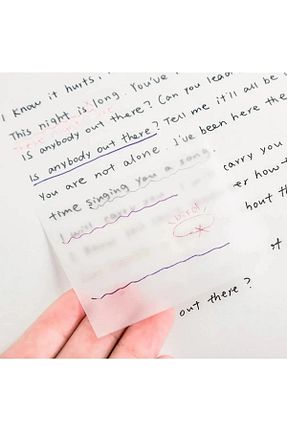 I know it hurts,
This night is long. You've
Is anybody out there? Can you lead
Is anybody out there? Tell me it'll all be
You are not alone. I've been here the
time singing you a song.
I will carry you
carry you
er how
bird
hout th
of
out there?